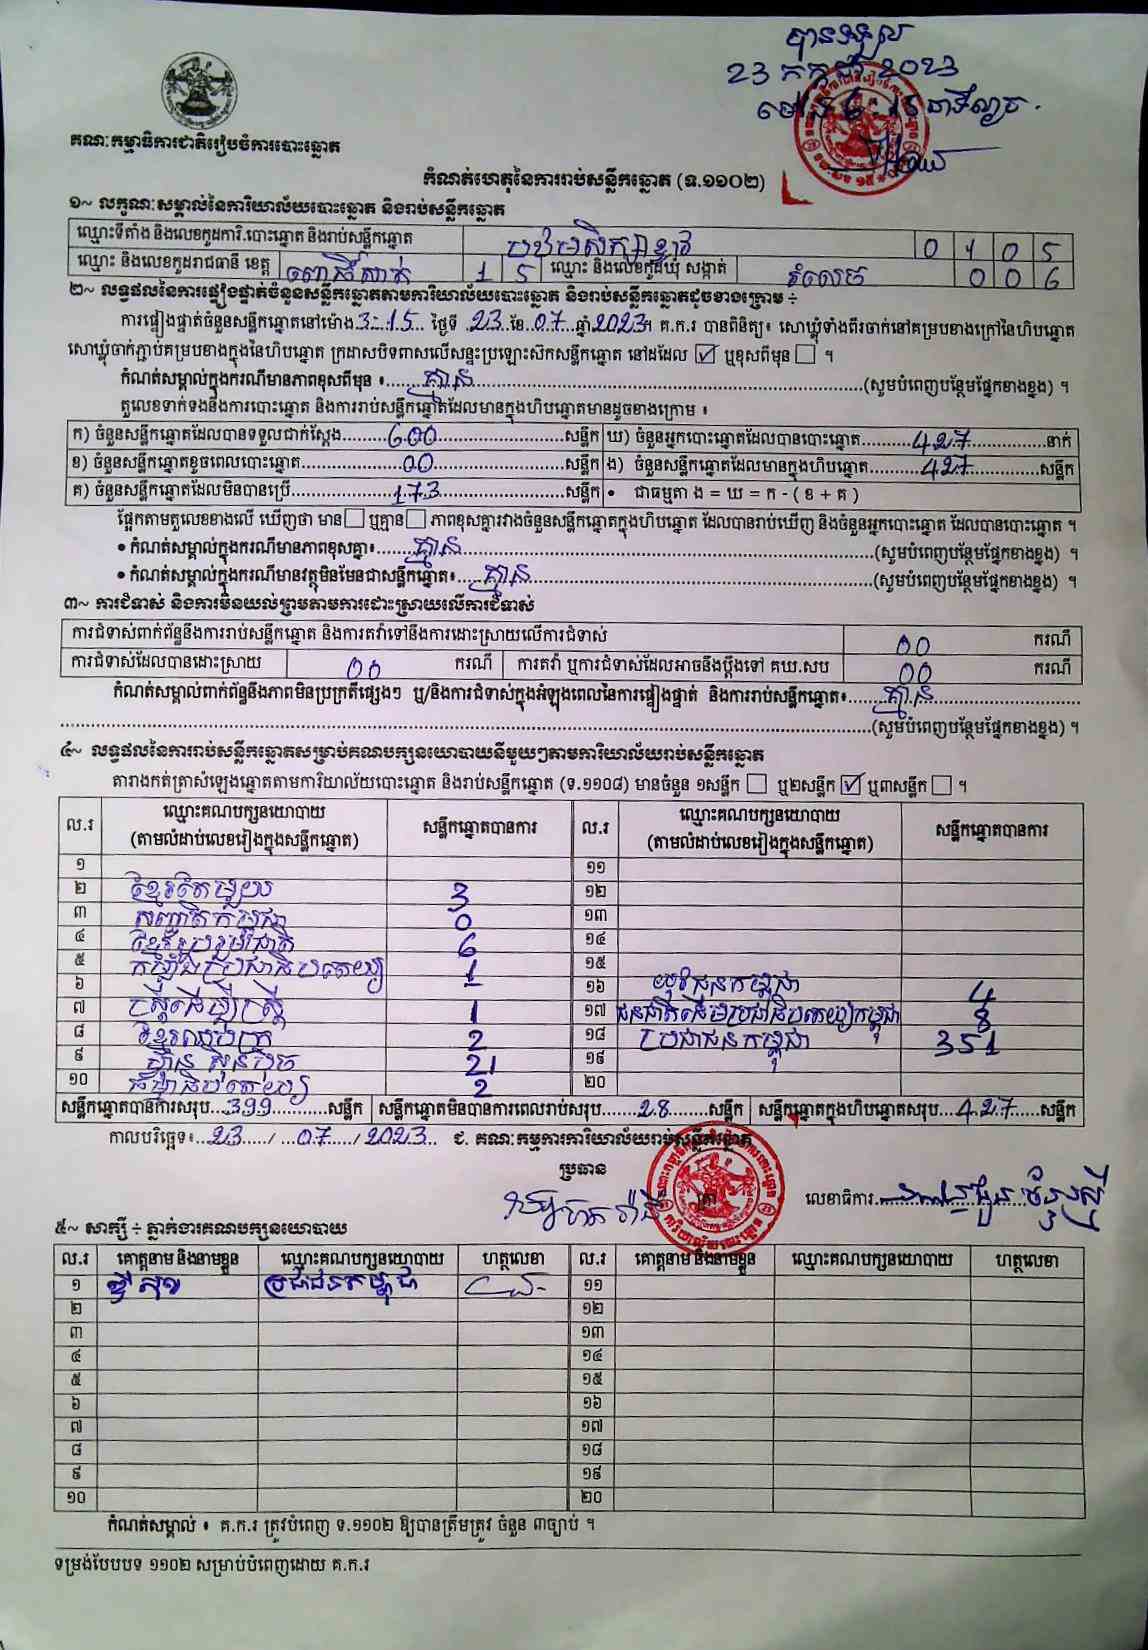 បានទទួល
23 កក្កដា 2023
ម៉ោង 6:15 នាទីល្ងាច.
គណៈកម្មាធិការជាតិរៀបចំការបោះឆ្នោត
កំណត់ហេតុនៃការរាប់សន្លឹកឆ្នោត (ទ.១១០២)
១~ លក្ខណៈសម្គាល់នៃការិយាល័យបោះឆ្នោត និងរាប់សន្លឹកឆ្នោត
ឈ្មោះទីតាំង និងលេខកូដការិ.បោះឆ្នោត និងរាប់សន្លឹកឆ្នោត 0 1 0 5
ឈ្មោះ និងលេខកូដរាជធានី ខេត្ត ពោធិ៍សាត់ 1 5 ឈ្មោះ និងលេខកូដឃុំ សង្កាត់ រំលេច 0 0 6
២~ លទ្ធផលនៃការផ្ទៀងផ្ទាត់ចំនួនសន្លឹកឆ្នោតតាមការិយាល័យបោះឆ្នោត និងរាប់សន្លឹកឆ្នោតដូចខាងក្រោម ÷
ការផ្ទៀងផ្ទាត់ចំនួនសន្លឹកឆ្នោតនៅម៉ោង 3:15 ថ្ងៃទី 23 ខែ 07 ឆ្នាំ 2023។ គ.ក.រ បានពិនិត្យ៖ សោឃ្លុំទាំងពីរចាក់នៅគម្របខាងក្រៅនៃហិបឆ្នោត
សោឃ្លុំចាក់ភ្ជាប់គម្របខាងក្នុងនៃហិបឆ្នោត ក្រដាសបិទពាសលើសន្ទះប្រឡោះស៊កសន្លឹកឆ្នោត នៅដដែល ☑ ឬខុសពីមុន ☐ ។
កំណត់សម្គាល់ក្នុងករណីមានភាពខុសពីមុន ៖ គ្មាន (សូមបំពេញបន្ថែមផ្នែកខាងខ្នង) ។
តួលេខទាក់ទងនឹងការបោះឆ្នោត និងការរាប់សន្លឹកឆ្នោតដែលមានក្នុងហិបឆ្នោតមានដូចខាងក្រោម ៖
ក) ចំនួនសន្លឹកឆ្នោតដែលបានទទួលជាក់ស្តែង 600 សន្លឹក ឃ) ចំនួនអ្នកបោះឆ្នោតដែលបានបោះឆ្នោត 427 នាក់
ខ) ចំនួនសន្លឹកឆ្នោតខូចពេលបោះឆ្នោត 00 សន្លឹក ង) ចំនួនសន្លឹកឆ្នោតដែលមានក្នុងហិបឆ្នោត 427 សន្លឹក
គ) ចំនួនសន្លឹកឆ្នោតដែលមិនបានប្រើ 173 សន្លឹក • ជាធម្មតា ង = ឃ = ក - ( ខ + គ )
ផ្អែកតាមតួលេខខាងលើ ឃើញថា មាន ☐ ឬគ្មាន ☐ ភាពខុសគ្នារវាងចំនួនសន្លឹកឆ្នោតក្នុងហិបឆ្នោត ដែលបានរាប់ឃើញ និងចំនួនអ្នកបោះឆ្នោត ដែលបានបោះឆ្នោត ។
• កំណត់សម្គាល់ក្នុងករណីមានភាពខុសគ្នា៖ គ្មាន (សូមបំពេញបន្ថែមផ្នែកខាងខ្នង) ។
• កំណត់សម្គាល់ក្នុងករណីមានវត្ថុមិនមែនជាសន្លឹកឆ្នោត៖ គ្មាន (សូមបំពេញបន្ថែមផ្នែកខាងខ្នង) ។
៣~ ការជំទាស់ និងការមិនយល់ព្រមតាមការដោះស្រាយលើការជំទាស់
ការជំទាស់ពាក់ព័ន្ធនឹងការរាប់សន្លឹកឆ្នោត និងការតវ៉ាទៅនឹងការដោះស្រាយលើការជំទាស់ 00 ករណី
ការជំទាស់ដែលបានដោះស្រាយ 00 ករណី ការតវ៉ា ឬការជំទាស់ដែលអាចនឹងប្តឹងទៅ គឃ.សប 00 ករណី
កំណត់សម្គាល់ពាក់ព័ន្ធនឹងភាពមិនប្រក្រតីផ្សេងៗ ឬ/និងការជំទាស់ក្នុងអំឡុងពេលនៃការផ្ទៀងផ្ទាត់ និងការរាប់សន្លឹកឆ្នោត៖ គ្មាន
(សូមបំពេញបន្ថែមផ្នែកខាងខ្នង) ។
៤~ លទ្ធផលនៃការរាប់សន្លឹកឆ្នោតសម្រាប់គណបក្សនយោបាយនីមួយៗតាមការិយាល័យរាប់សន្លឹកឆ្នោត
តារាងកត់ត្រាសំឡេងឆ្នោតតាមការិយាល័យបោះឆ្នោត និងរាប់សន្លឹកឆ្នោត (ទ.១១០៨) មានចំនួន ១សន្លឹក ☐ ឬ២សន្លឹក ☑ ឬ៣សន្លឹក ☐ ។
ល.រ ឈ្មោះគណបក្សនយោបាយ (តាមលំដាប់លេខរៀងក្នុងសន្លឹកឆ្នោត) សន្លឹកឆ្នោតបានការ ល.រ ឈ្មោះគណបក្សនយោបាយ (តាមលំដាប់លេខរៀងក្នុងសន្លឹកឆ្នោត) សន្លឹកឆ្នោតបានការ
១ ១១
២ ខ្មែរតែមួយ 3 ១២
៣ សញ្ជាតិកម្ពុជា 0 ១៣
៤ ខ្មែររួបរួមជាតិ 6 ១៤
៥ កម្លាំងប្រជាធិបតេយ្យ 1 ១៥
៦ ១៦ យុវជនកម្ពុជា 4
៧ ស្ត្រីដើម្បីស្ត្រី 1 ១៧ ជនជាតិដើមប្រជាធិបតេយ្យកម្ពុជា 8
៨ 2 ១៨ ប្រជាជនកម្ពុជា 351
៩ ហ្វ៊ុនស៊ិនប៉ិច 21 ១៩
១០ ធម្មាធិបតេយ្យ 2 ២០
សន្លឹកឆ្នោតបានការសរុប 399 សន្លឹក សន្លឹកឆ្នោតមិនបានការពេលរាប់សរុប 28 សន្លឹក សន្លឹកឆ្នោតក្នុងហិបឆ្នោតសរុប 427 សន្លឹក
កាលបរិច្ឆេទ៖ 23 / 07 / 2023 ជ. គណៈកម្មការការិយាល័យរាប់សន្លឹកឆ្នោត
ប្រធាន
ត្រា លេខាធិការ
៥~ សាក្សី ÷ ភ្នាក់ងារគណបក្សនយោបាយ
ល.រ គោត្តនាម និងនាមខ្លួន ឈ្មោះគណបក្សនយោបាយ ហត្ថលេខា ល.រ គោត្តនាម និងនាមខ្លួន ឈ្មោះគណបក្សនយោបាយ ហត្ថលេខា
១ ប្រជាជនកម្ពុជា ១១
២ ១២
៣ ១៣
៤ ១៤
៥ ១៥
៦ ១៦
៧ ១៧
៨ ១៨
៩ ១៩
១០ ២០
កំណត់សម្គាល់ ៖ គ.ក.រ ត្រូវបំពេញ ទ.១១០២ ឱ្យបានត្រឹមត្រូវ ចំនួន ៣ច្បាប់ ។
ទម្រង់បែបបទ ១១០២ សម្រាប់បំពេញដោយ គ.ក.រ